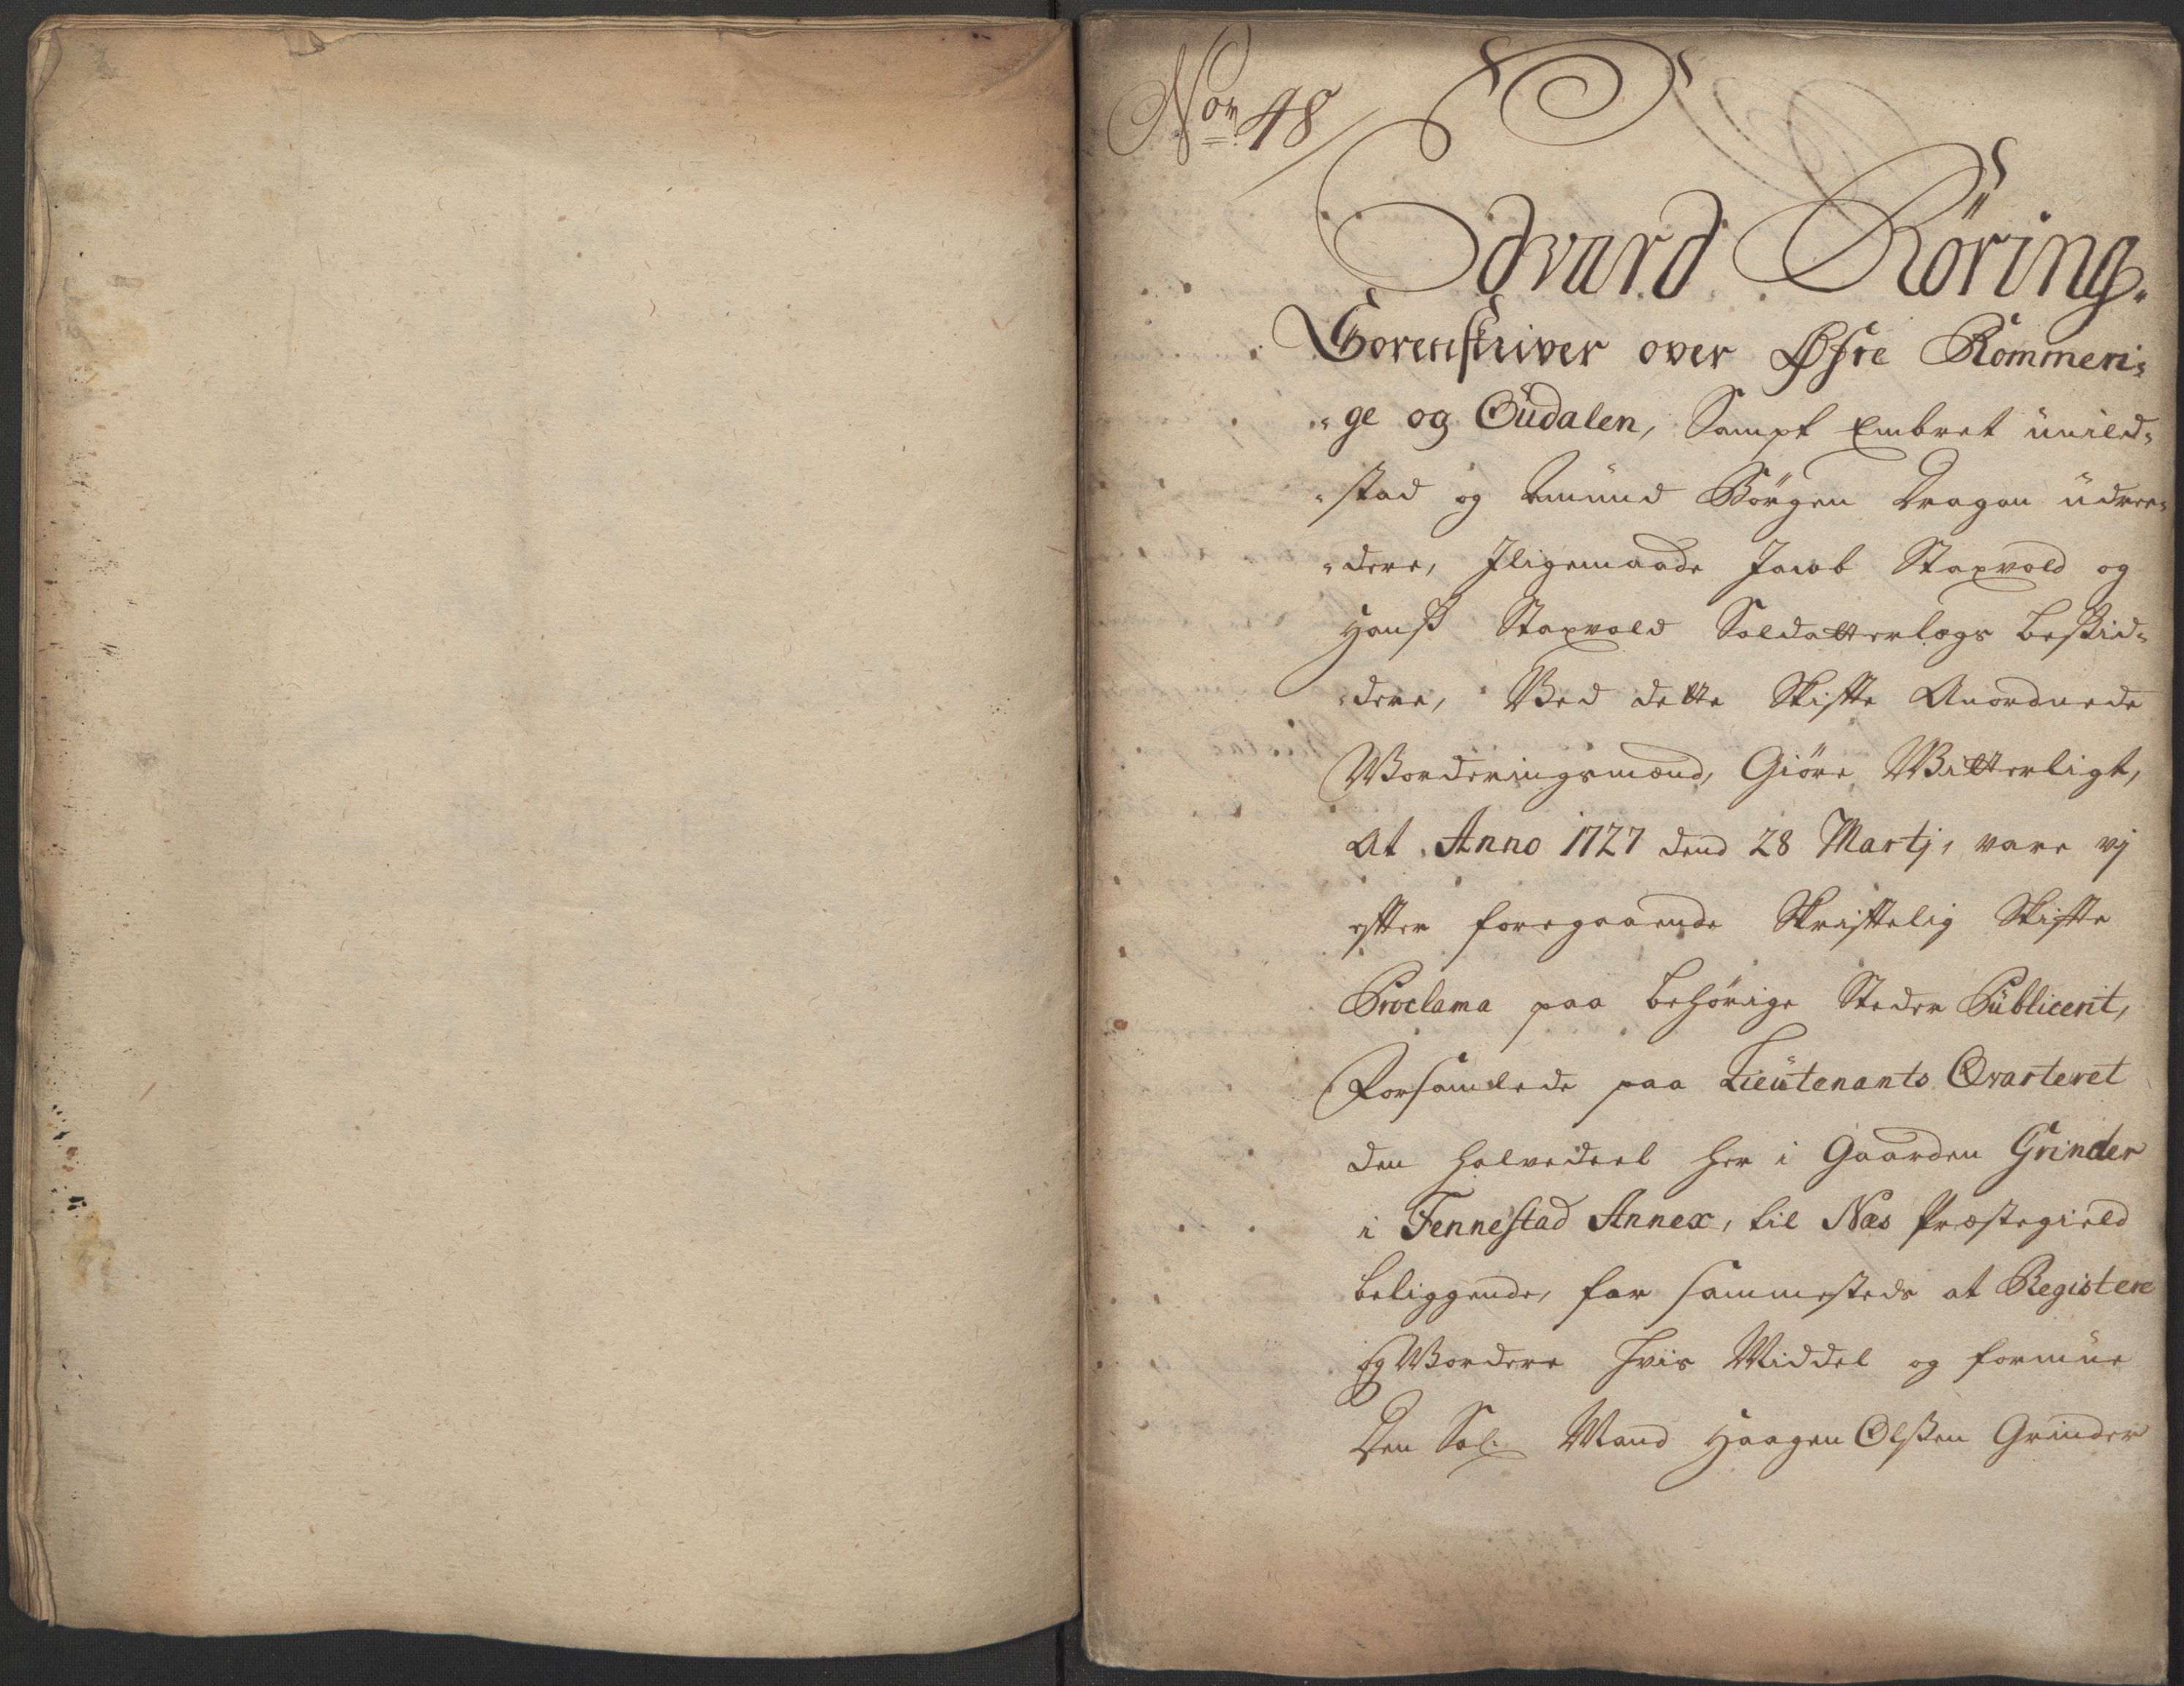 No 48
Edvard Röring.
Sorenskriver over Øfre Rommeri-
-ge og Oudalen, Sampt Embret
-stad og Amund Börgen Dragon udree-
-dere, Jligemaade Jacob Staxvold og
Hanß Staxvold Soldatterlegs beskid-
-dere, Ved dette Skifte Anordnede
Vorderingsmænd, Giöre Vitterligt,
At Anno 1727 dend 28 Martj, vare vj
efter foregaaende Skriftelig Skifte
Proclama paa behörige Steder Publicerit,
Forsamlede paa Lieutenants Qvarteret
den halvedeel her i Gaarden Grinder
i Fennestad Annex, til Næs Præstegield
beliggende, for sammesteds at Registere
og Vordere hvis Middel og formue
Den Sal: Mand Haagen Olßen Grinder